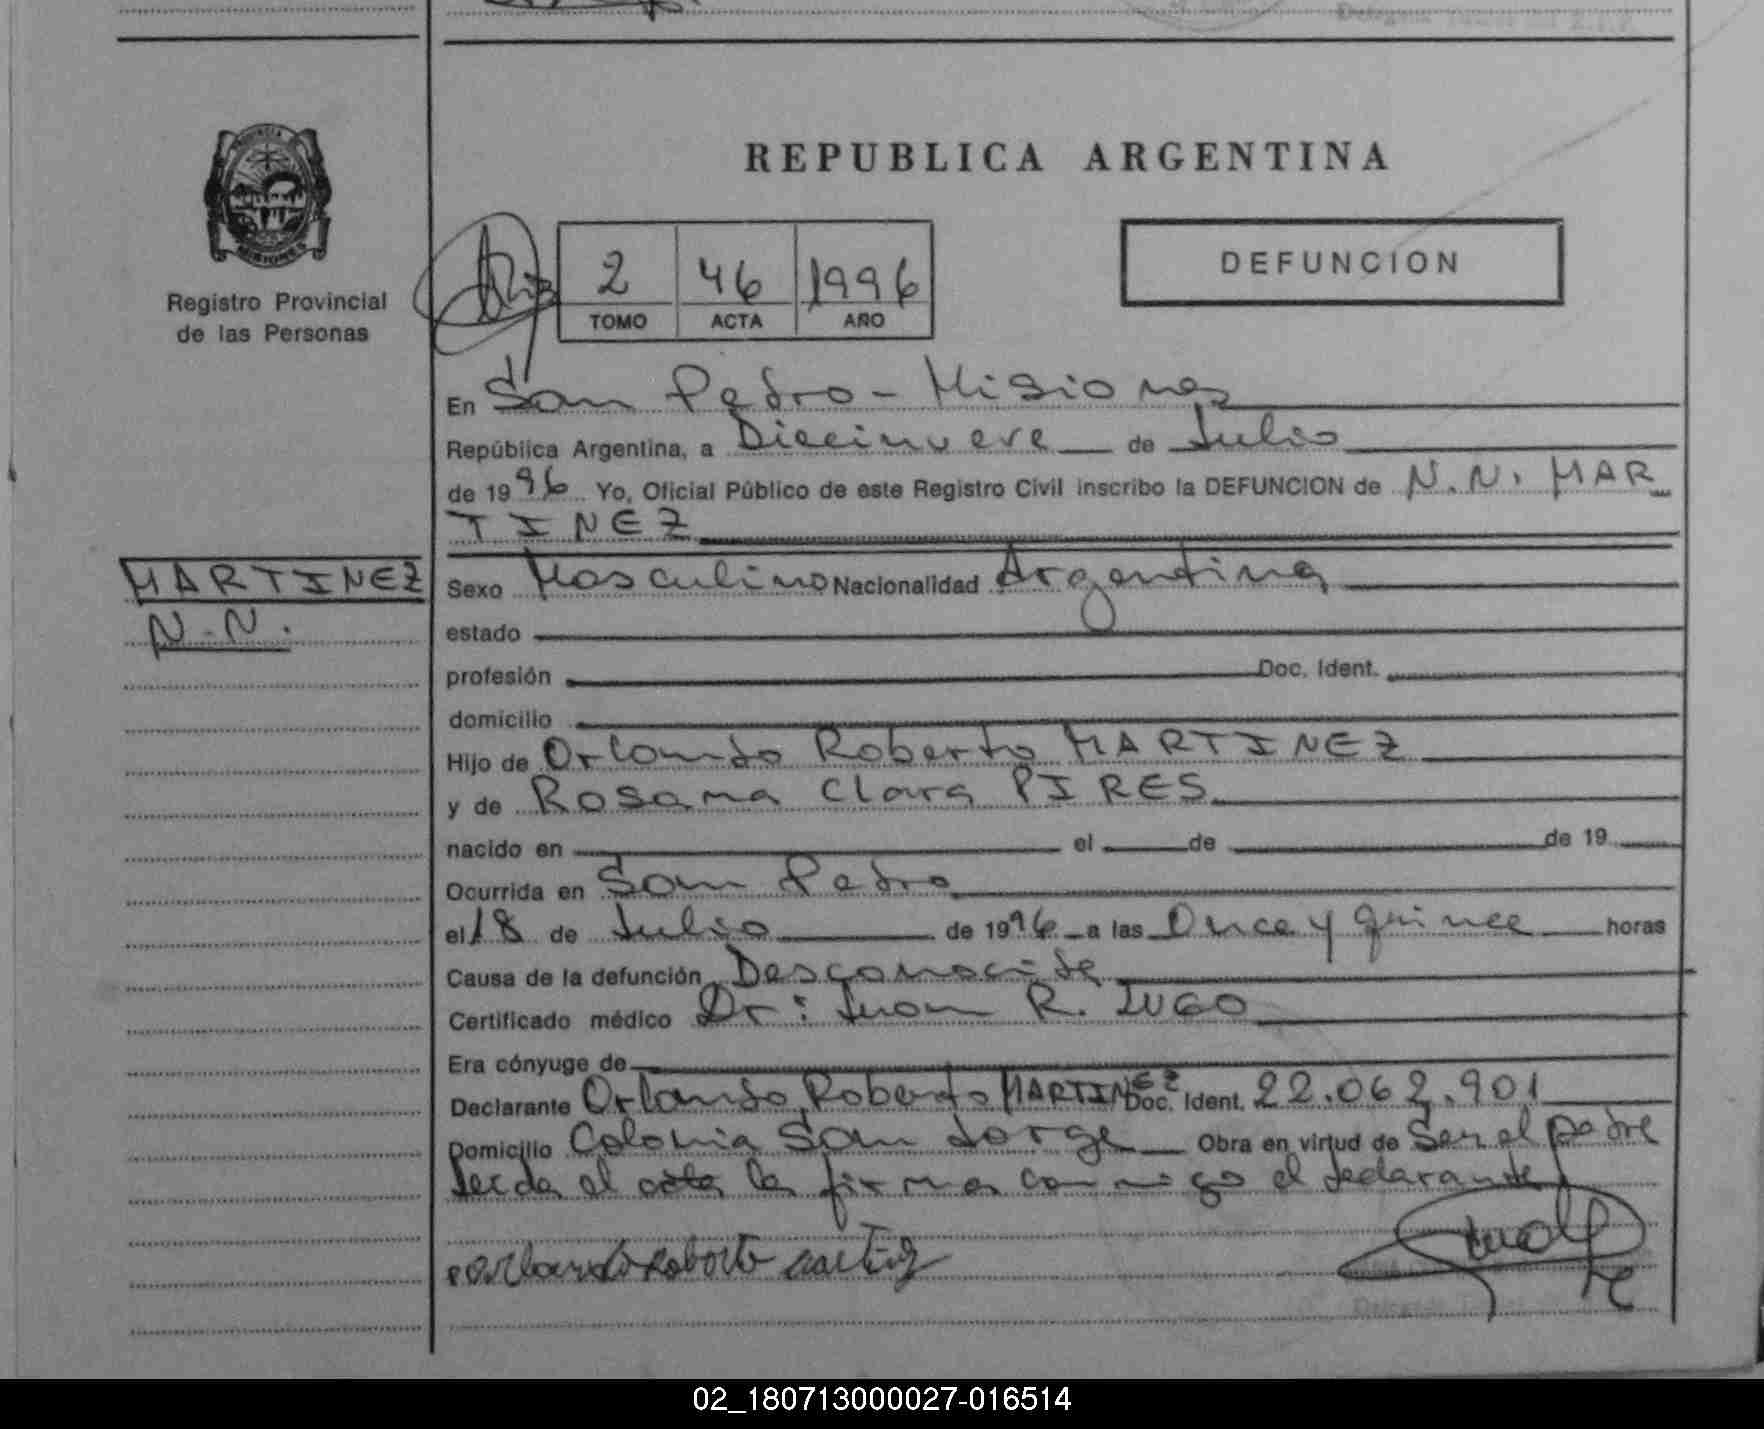 REPUBLICA ARGENTINA
PROVINCIA
MISIONES
Registro Provincial
de las Personas
2 46 1996
TOMO ACTA AÑO
DEFUNCION
En San Pedro - Misiones
República Argentina, a Diecinueve de Julio
de 1996 Yo, Oficial Público de este Registro Civil inscribo la DEFUNCION de N.N. MAR
TINEZ
MARTINEZ
N.N.
Sexo Masculino Nacionalidad Argentina
estado
profesión Doc. Ident.
domicilio
Hijo de Orlando Roberto MARTINEZ
y de Rosana Clara PIRES
nacido en el de de 19
Ocurrida en San Pedro
el 18 de Julio de 1996 a las Once y quince horas
Causa de la defunción Desconocida
Certificado médico Dr: Juan R. LUGO
Era cónyuge de
Declarante Orlando Roberto MARTINEZ Doc. Ident. 22.062.901
Domicilio Colonia San Jorge Obra en virtud de Ser el padre
Leida el acta la firma conmigo el declarante
Orlando Roberto
02_180713000027-016514